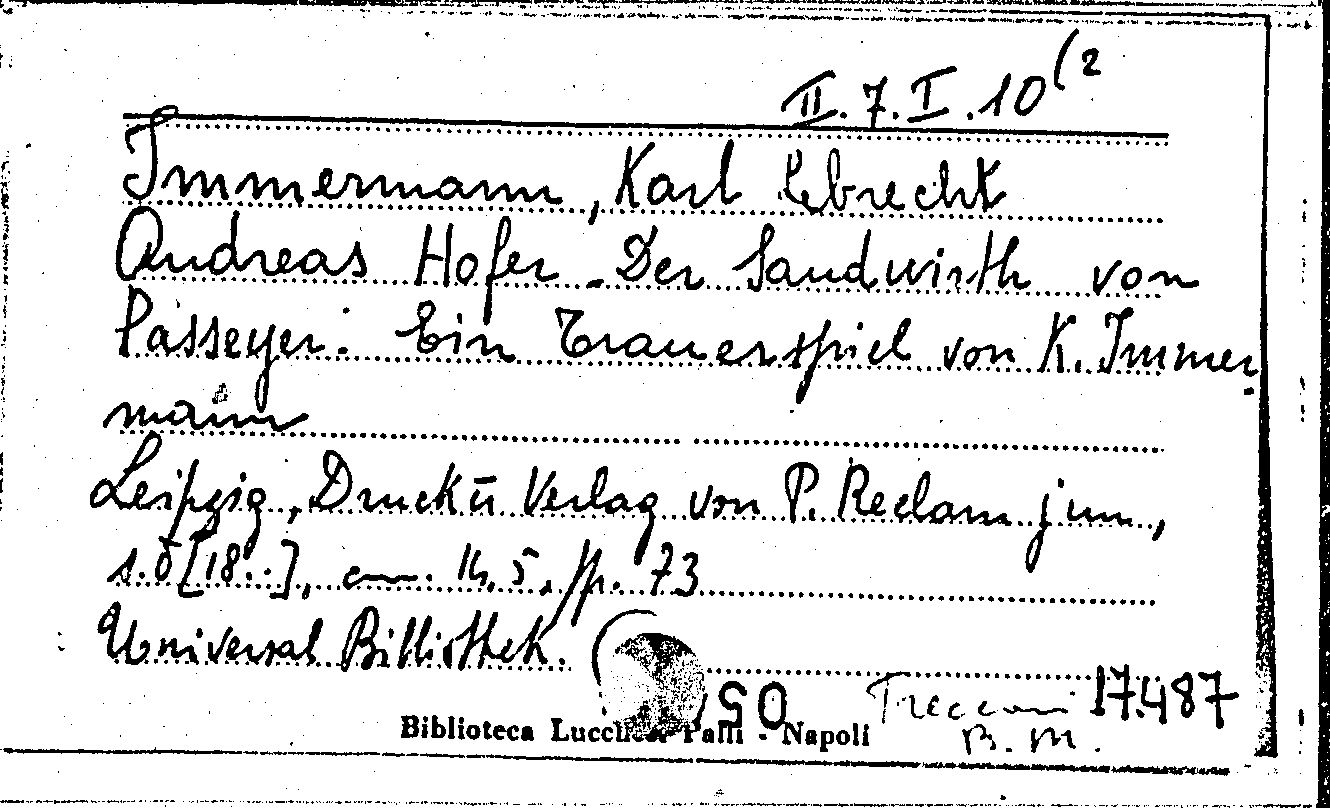 II.7.I.10(2
Immermann, Karl Lebrecht
Andreas Hofer. Der Sandwirth von
Passeyer. Ein Trauerspiel von K. Immer-
mann
Leipzig, Druck u Verlag von P. Reclam jun.,
s.d [18..], cm. 14,5, pp. 73
Universal Bibliothek.
50
Treccani 17.487
Biblioteca Lucchesi Palli - Napoli
B. M.